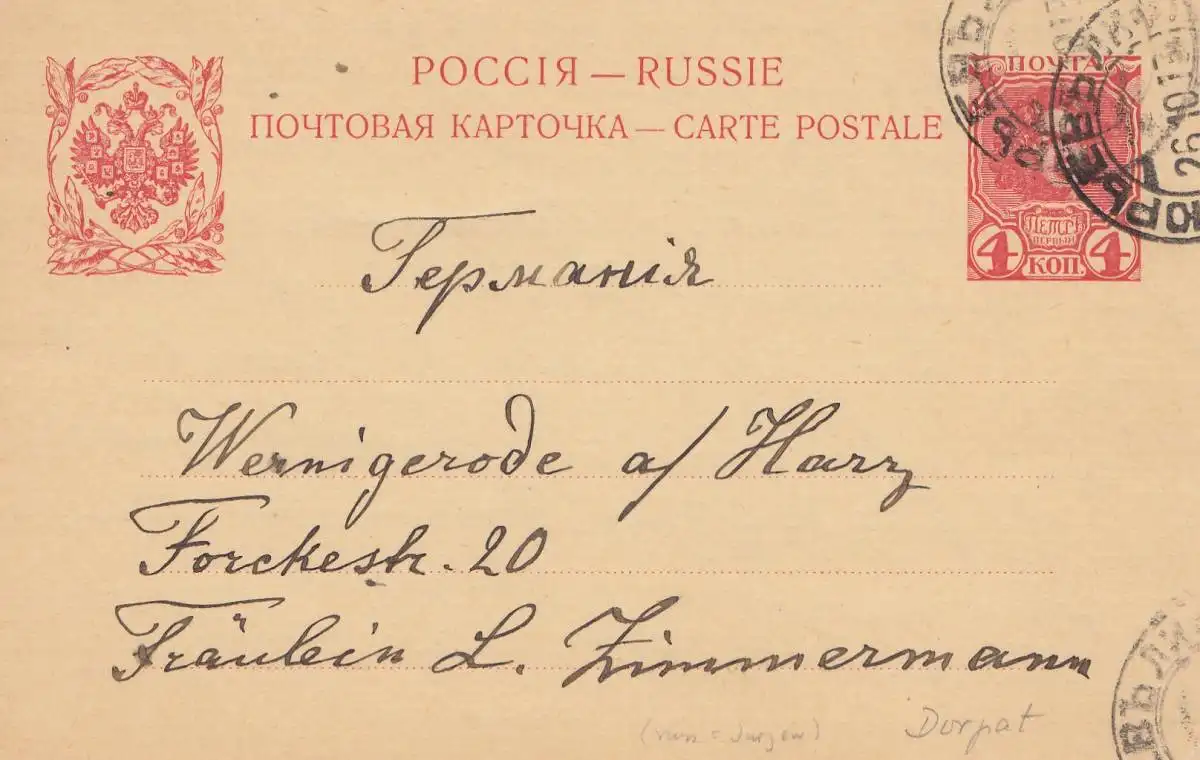 РОССІЯ — RUSSIE
ПОЧТОВАЯ КАРТОЧКА — CARTE POSTALE
ПОЧТА
ПЕТРЪ
ПЕРВЫЙ
4 КОП. 4
ЮРЬЕВЪ
26
Германія
Wernigerode a/ Harz
Forckestr. 20
Fräulein L. Zimmermann
Dorpat